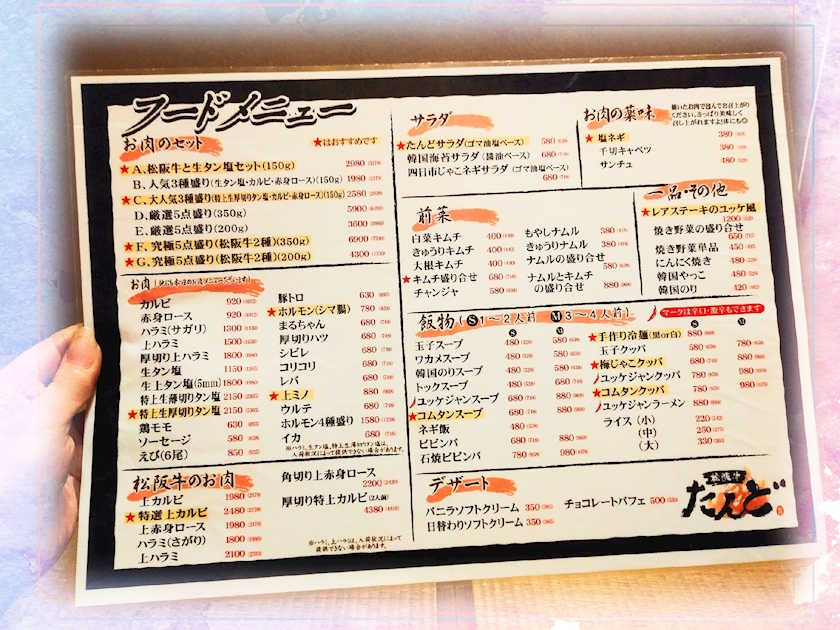 フードメニュー
お肉のセット
★はおすすめです
★A、松阪牛と生タン塩セット(150g) 2980
B、人気3種盛り(生タン塩・カルビ・赤身ロース)(150g) 1980
★C、大人気3種盛り(特上生厚切りタン塩・カルビ・赤身ロース)(150g) 2580
D、厳選5点盛り(350g) 5900
E、厳選5点盛り(200g) 3600
★F、究極5点盛り(松阪牛2種)(350g) 6900
★G、究極5点盛り(松阪牛2種)(200g) 4300
お肉
カルビ 920
赤身ロース 920
ハラミ(サガリ) 1300
上ハラミ 1500
厚切り上ハラミ 1800
生タン塩 1150
生上タン塩(5mm) 1800
特上生薄切りタン塩 2150
★特上生厚切りタン塩 2150
鶏モモ 630
ソーセージ 580
えび(6尾) 850
豚トロ 630
★ホルモン(シマ腸) 780
まるちゃん 680
厚切りハツ 680
シビレ 680
コリコリ 680
レバ 680
★上ミノ 880
ウルテ 680
ホルモン4種盛り 1580
イカ 680
※ハラミ,生タン塩,特上生薄切りタン塩は、
入荷状況によって提供できない場合が有ります。
松阪牛のお肉
上カルビ 1980
★特選上カルビ 2480
上赤身ロース 1980
ハラミ(さがり) 1800
上ハラミ 2100
角切り上赤身ロース
2200
厚切り特上カルビ(2人前)
4380
※ハラミ,上ハラミは、入荷状況によって
提供できない場合が有ります。
サラダ
★たんどサラダ(ゴマ油塩ベース) 580
韓国海苔サラダ(醤油ベース) 680
四日市じゃこネギサラダ(ゴマ油塩ベース)
680
お肉の薬味
焼いたお肉で包んでお召上がり
ください。さっぱり美味しく
召し上がれますよ!体にも◎
★塩ネギ 380
千切キャベツ 380
サンチュ 480
前菜
白菜キムチ 400
きゅうりキムチ 400
大根キムチ 400
★キムチ盛り合せ 680
チャンジャ 580
もやしナムル 380
きゅうりナムル 380
ナムルの盛り合せ
580
ナムルとキムチ
の盛り合せ 880
一品・その他
★レアステーキのユッケ風
1200
焼き野菜の盛り合せ
650
焼き野菜単品 450
にんにく焼き 480
韓国やっこ 480
韓国のり 420
飯物(S1〜2人前 M3〜4人前)
マークは辛口・激辛もできます
S M
玉子スープ 480 580
ワカメスープ 480 580
韓国のりスープ 480 580
トックスープ 480 580
ユッケジャンスープ 680 880
★コムタンスープ 680 880
ネギ飯 480
ビビンバ 680 880
石焼ビビンバ 780 980
S M
★手作り冷麺(黒or白) 880
玉子クッパ 580 780
★梅じゃこクッパ 680 880
ユッケジャンクッパ 780 980
★コムタンクッパ 780 980
ユッケジャンラーメン 880
ライス(小) 220
(中) 250
(大) 330
デザート
バニラソフトクリーム 350
日替わりソフトクリーム 350
チョコレートパフェ 500
松阪牛
たんど